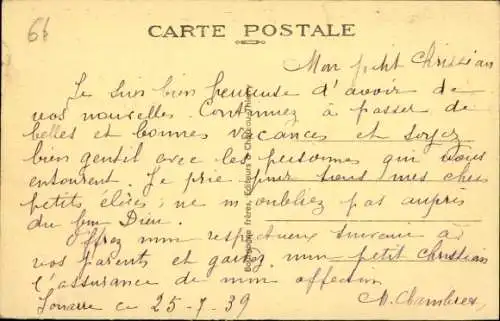 68
CARTE POSTALE
Mon petit Christian
Je suis bien heureuse d'avoir de
vos nouvelles. Continuez à passer de
belles et bonnes vacances et soyez
bien gentil avec les personnes qui vous
entourent. Je prie pour tous mes chers
petits élèves; ne m'oubliez pas auprès
du bon Dieu.
Offrez mon respectueux souvenir à
vos parents et gardez, mon petit Christian
l'assurance de mon affection
Jouarre ce 25-7-39